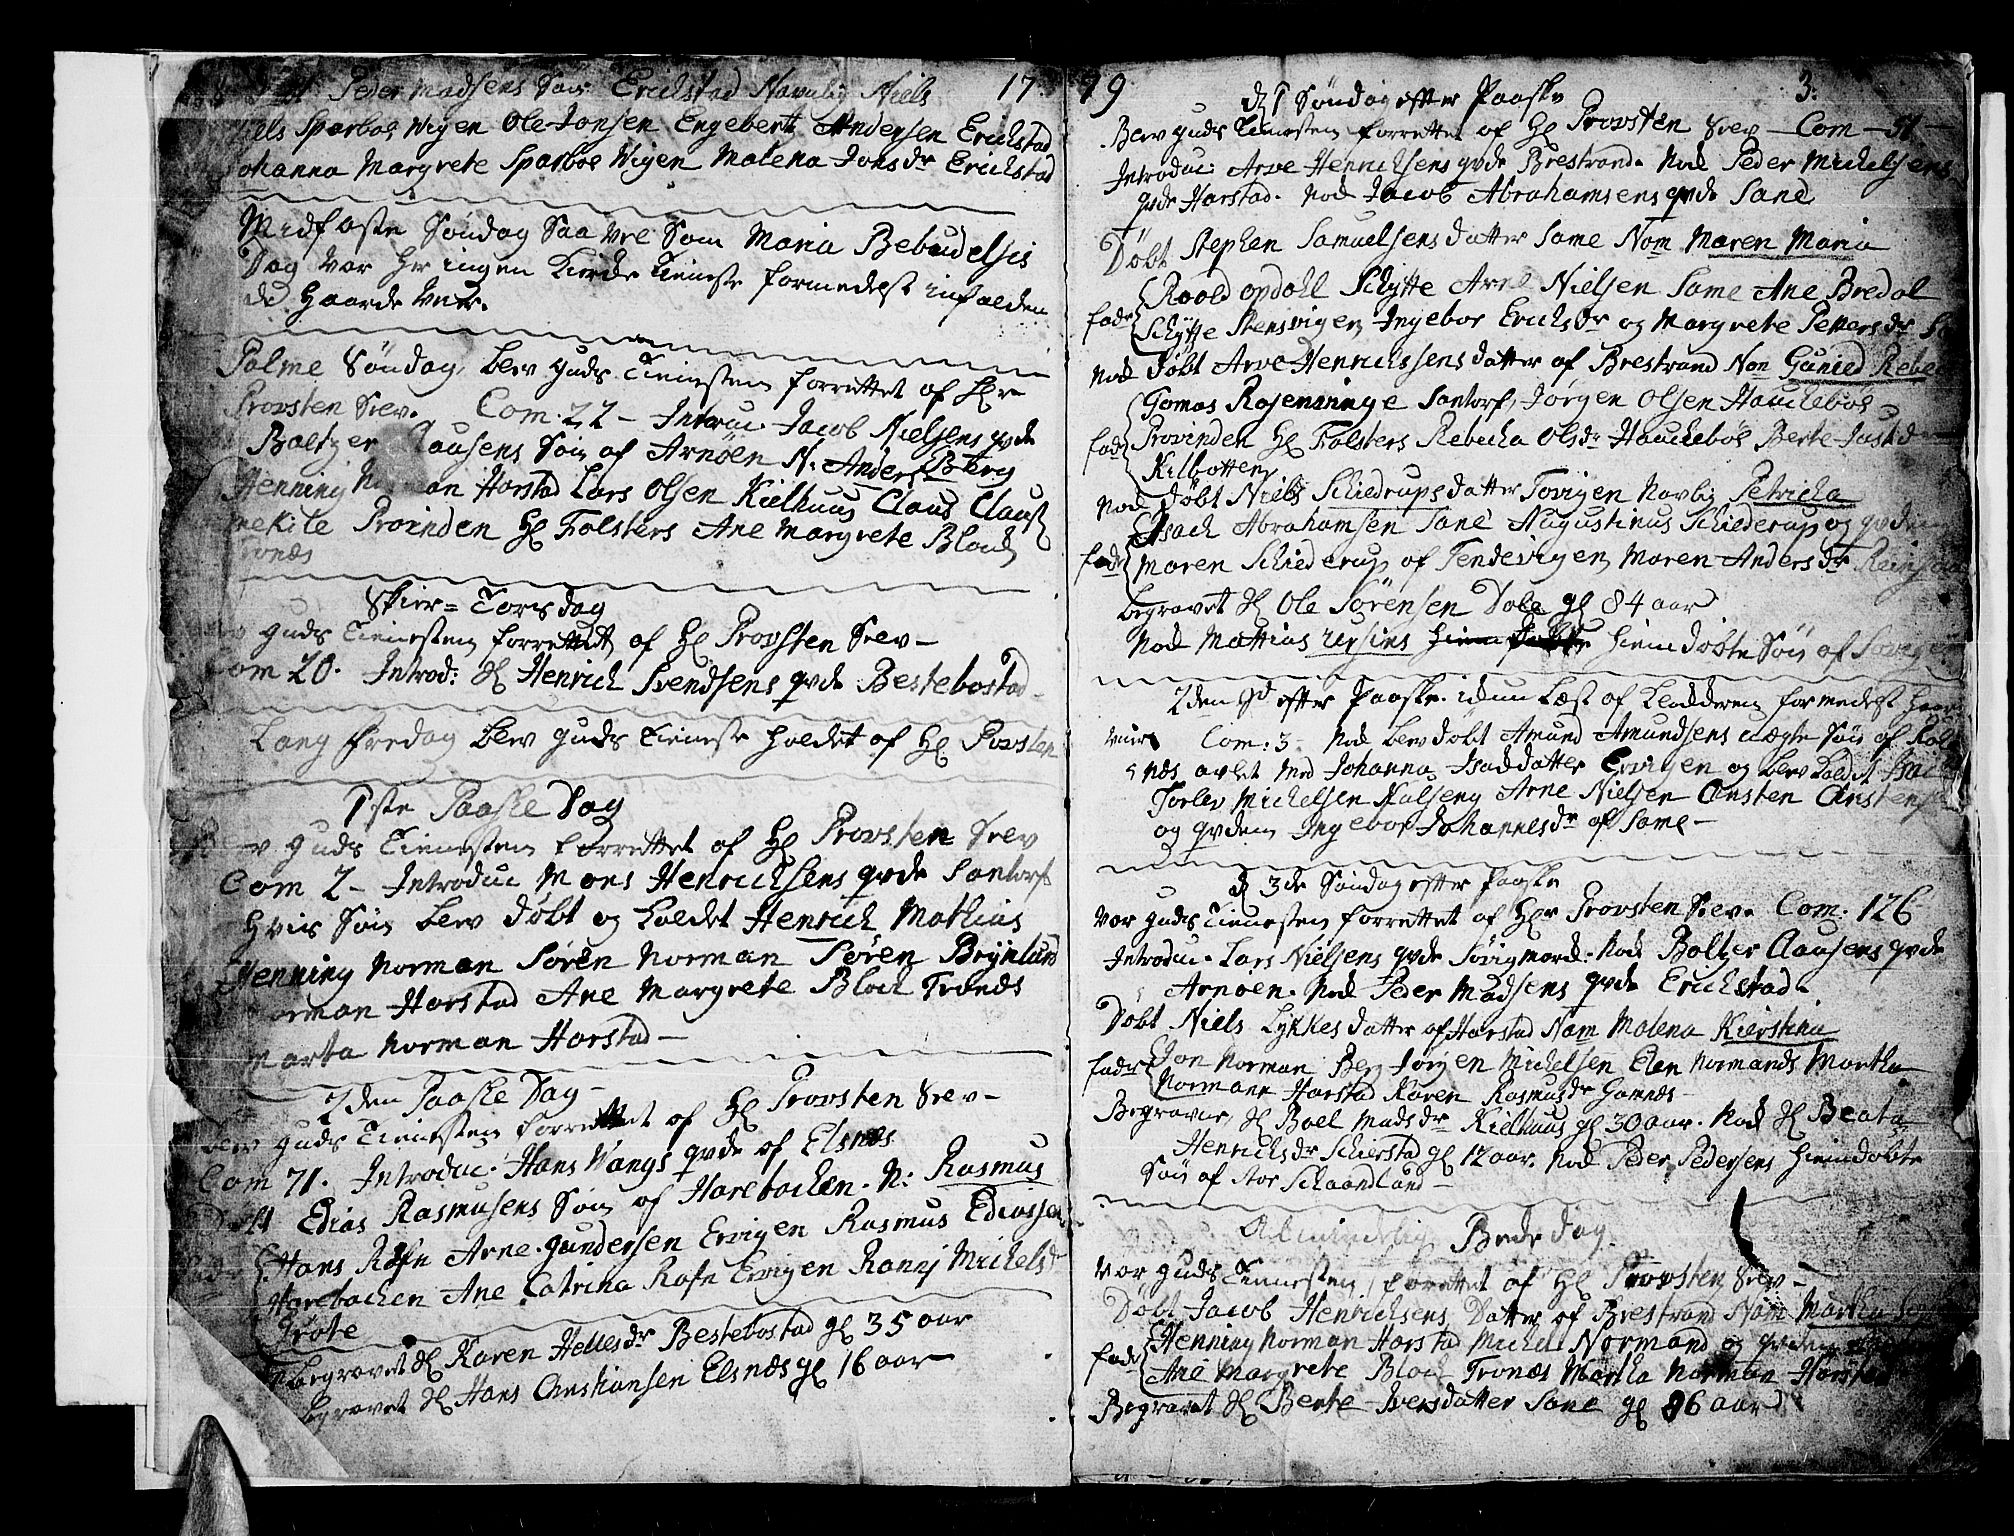 Peder Madsens Søn Erichstad Navnlig Niels 17
Niels Sparboe Wigen Ole Jonsen Engebert Andersen Erichstad
Johanna Margrete Sparboe Wigen Malena Jonsdr Erichstad
Midfaste Søndag Saa vel Som Maria Bebudelses
Dag var her ingen Kirke Tieneste formedelst infalden
de haarde veir.
Palme Søndag blev Guds Tienesten forrettet af Hr
Provsten Srev. Com. 22 – Introuc. Jacob Nielsens qvde
Baltzer Clausens Søn af Arnøen N: Anders Berg
Henning Norman Harstad Lars Olsen Kielhuus Claus Claus
Provinden Hl Holsters Ane Margrete Bloch
Tronæs
Skier = Torsdag
Guds Tienesten forrettet af Hl Provsten Srev –
Com 20. Introd: Hl Henrich Svendsens qvde Bestebostad –
Lang fredag blev Guds Tieneste holdet af Hl Provsten
1ste Paaske Dag
Guds Tienesten forrettet af Hl Provsten Srev
Com 2 – Introduc Mons Henrichsens qvde Santorf
hvis Søn blev døbt og kaldet Henrich Mathias
Henning Norman Søren Norman Søren Brynlund
Norman Harstad Ane Margrete Bloch Tronæs
Marta Norman Harstad –
2den Paaske Dag –
blev Guds Tienesten forrettet af Hl Provsten Srev –
Com 71. Introduc. Hans Wangs qvde af Elsnæs
Døbt Edias Rasmusens Søn af Harebachen. N: Rasmus
fadr Hans Rafn Arne Gundersen Ervigen Rasmus Ediassen
Harebachen Ane Catrina Rafn Ervigen Ranij Michelsd
Grøte
begravet Hl Karen Hellesdr Bestebostad gl 35 aar
begravet Hl Hans Christiansen Elsnæs gl 16 aar
79 3.
d 1 Søndag efter Paaske
Blev Guds Tienesten forrettet af Hl Provsten Srev – Com – 51 –
Introduc: Arve Henrichsens qvde Brestrand. Nod Peder Michelsens
qvde Harstad. Nod Jacob Abrahamsens qvde Sane
Døbt Stephen Samuelsens datter Same Nom Maren Maria
fadr Roold opdahl Schytte Arne Nielsen Same Ane Bredal
Schytte Stensvigen Ingebor Ericksdr og Margrete Pettersdr
Nod Døbt Arve Henrichssens datter af Brestrand Nom Guniled Rebec
Tomas Roseninge Santorf Jørgen Olsen Hauckebøe
fadr Provinden Hl Holsters Rebecka Olsdr Hauckebøe Berte Justd
Kilbotten
Nod Døbt Niels Schiedrups datter Tovigen Navlig Petricka
Isach Abrahamsen Sane Augustinus Schiederup og qvden
fadr Maren Schiederup af Tendevigen Maren Andersdr
begravet Hl Ole Sørensen Dale gl 84 aar
Nod Mattias hiem døbte Søn af
2den Sd efter Paaske idun Læst af Kladderen formedelst haar
veir Com: 3 – Nod blev døbt Amund Amundsens uægte Søn af
næs avlet med Johanna Isaddatter Ervigen og blev kaldet
Torlev Michelsen Arne Nielsen Carsten Christens
og qvden Ingebor Johannesdr af Same –
d 3de Søndag efter Paaske
var Guds Tienesten forrettet af Hr Provsten Srev. Com. 126
Introduc. Lars Nielsens qvde Nod Boltzer Clausens qvde
Arnøen. Nod Peder Madsens qvde Erichstad.
Døbt Niels Lykkes datter af Harstad Nom Malena Kierstina
fadr Jon Norman Berg Jørgen Michelsen Elen Normands Martha
Normann Harstad Karen Rasmusdr Gamnæs –
Begraver, Hl Boel Madsdr Kielhuus gl 30 aar. Nod Hl Beata
Henrichsdr Schierstad gl 12 aar. Nod Peder Pedersens hiemdøbte
Søn af Stor Schaandland –
Almindelig Bede dag.
var Guds Tienesten forrettet af Hl Provsten Srev –
Døbt Jacob Henrichsens Datter af Brestrand Nom Martha
fadr Henning Norman Harstad Michel Normand og qvden
Ane Margrete Bloch Tronæs Martha Norman Harstad
Begravet Hl Berte Iversdatter Sane gl 86 aar